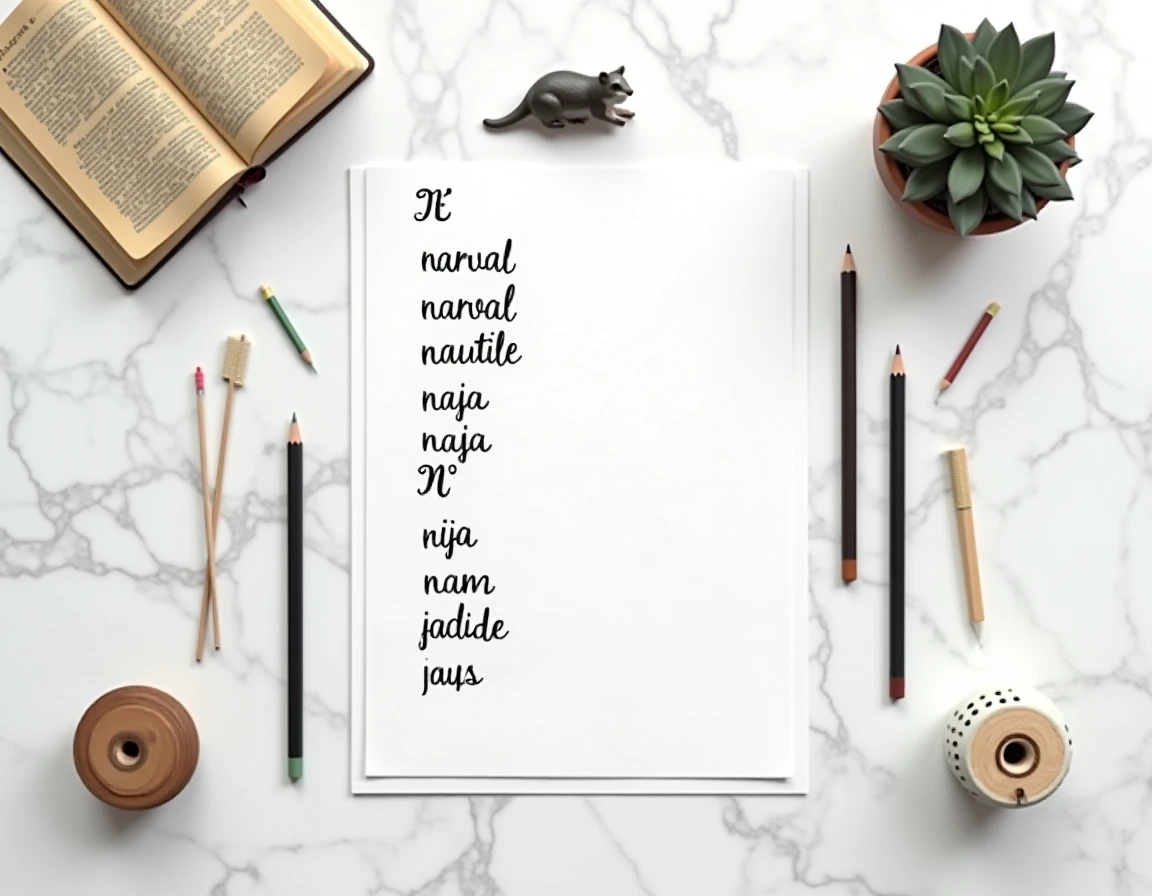 N'
narval
narval
nautile
naja
naja
N°
nija
nam
jadide
jays